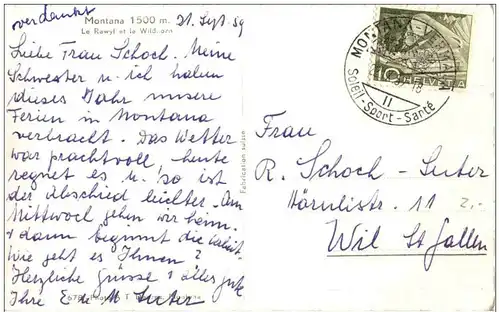 verdankt
Montana 1500 m. 21. Sept. 59
Le Rawyl et le Wildhorn
Liebe Frau Schoch. Meine
Schwester u. ich haben
dieses Jahr unsere
Ferien in Montana
verbracht. Das Wetter
war prachtvoll, heute
regnet es u. so ist
der Abschied leichter. Am
Mittwoch gehen wir heim.
+ dann beginnt die Arbeit.
Wie geht es Ihnen?
Herzliche Grüsse + alles gute
Ihre E. M. Suter
Fabrication suisse
MONTANA
II
Soleil-Sport-Santé
10 HELVETIA
Frau
R. Schoch-Suter
Hörnlistr. 11
Wil St. Gallen
2.-